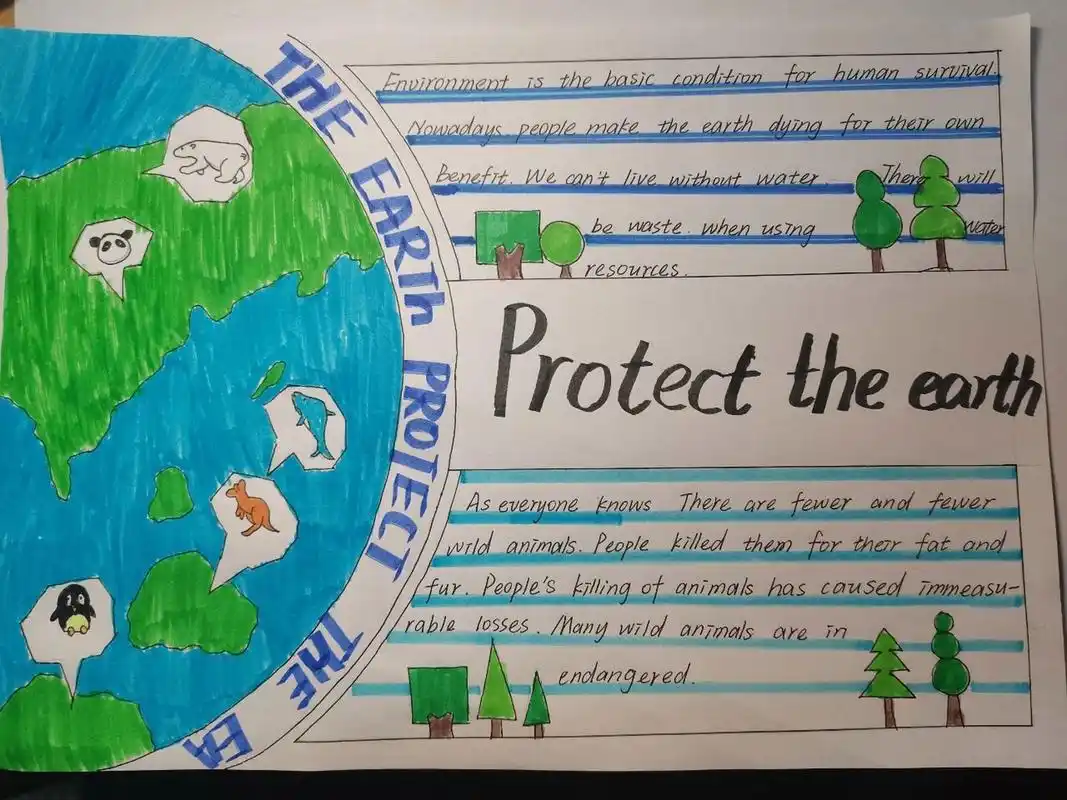 THE EARTH PROJECT THE EA
Environment is the basic condition for human survival.
Nowadays people make the earth dying for their own
Benefit. We can't live without water. There will
be waste. when using water
resources.
Protect the earth
As everyone knows There are fewer and fewer
wild animals. People killed them for their fat and
fur. People's killing of animals has caused immeasu-
rable losses. Many wild animals are in
endangered.